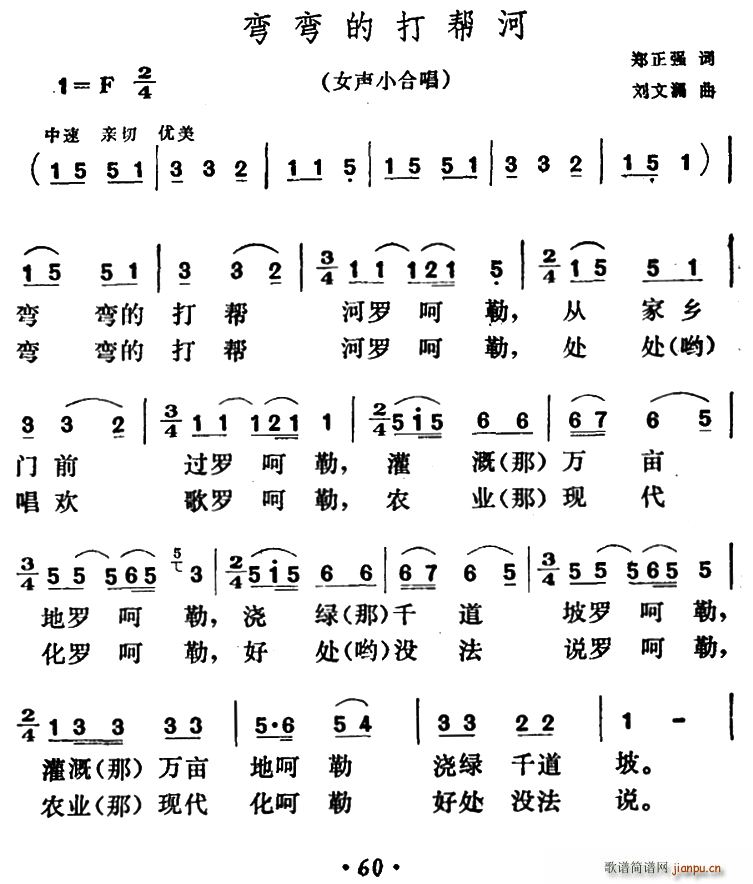 弯弯的打帮河
郑正强 词
1=F 2/4 (女声小合唱)
刘文 曲
中速 亲切 优美
(1 5 5 1 | 3 3 2 | 1 1 5 | 1 5 5 1 | 3 3 2 | 1 5 1) |
1 5 5 1 | 3 3 2 | 3/4 1 1 1 2 1 5 | 2/4 1 5 5 1 |
弯 弯的 打 帮 河罗 呵 勒, 从 家乡
弯 弯的 打 帮 河罗 呵 勒, 处 处(哟)
3 3 2 | 3/4 1 1 1 2 1 1 | 2/4 5 i 5 6 6 | 6 7 6 5 |
门前 过罗 呵 勒, 灌 溉(那) 万 亩
唱欢 歌罗 呵 勒, 农 业(那) 现 代
3/4 5 5 5 6 5 5 3 | 2/4 5 i 5 6 6 | 6 7 6 5 | 3/4 5 5 5 6 5 5 |
地罗 呵 勒, 浇 绿(那) 千 道 坡罗 呵 勒,
化罗 呵 勒, 好 处(哟) 没 法 说罗 呵 勒,
2/4 1 3 3 3 3 | 5·6 5 4 | 3 3 2 2 | 1 - |
灌溉(那) 万亩 地呵 勒 浇绿 千道 坡。
农业(那) 现代 化呵 勒 好处 没法 说。
·60·
歌谱简谱网
jianpu.cn